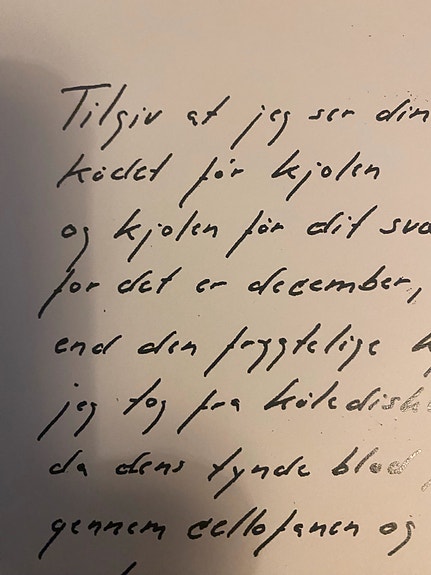 Tilgiv at jeg ser din
kødet før kjolen
og kjolen før dit
for det er december,
end den frygtelige
jeg tog fra
da dens tynde blod
gennem cellofanen og